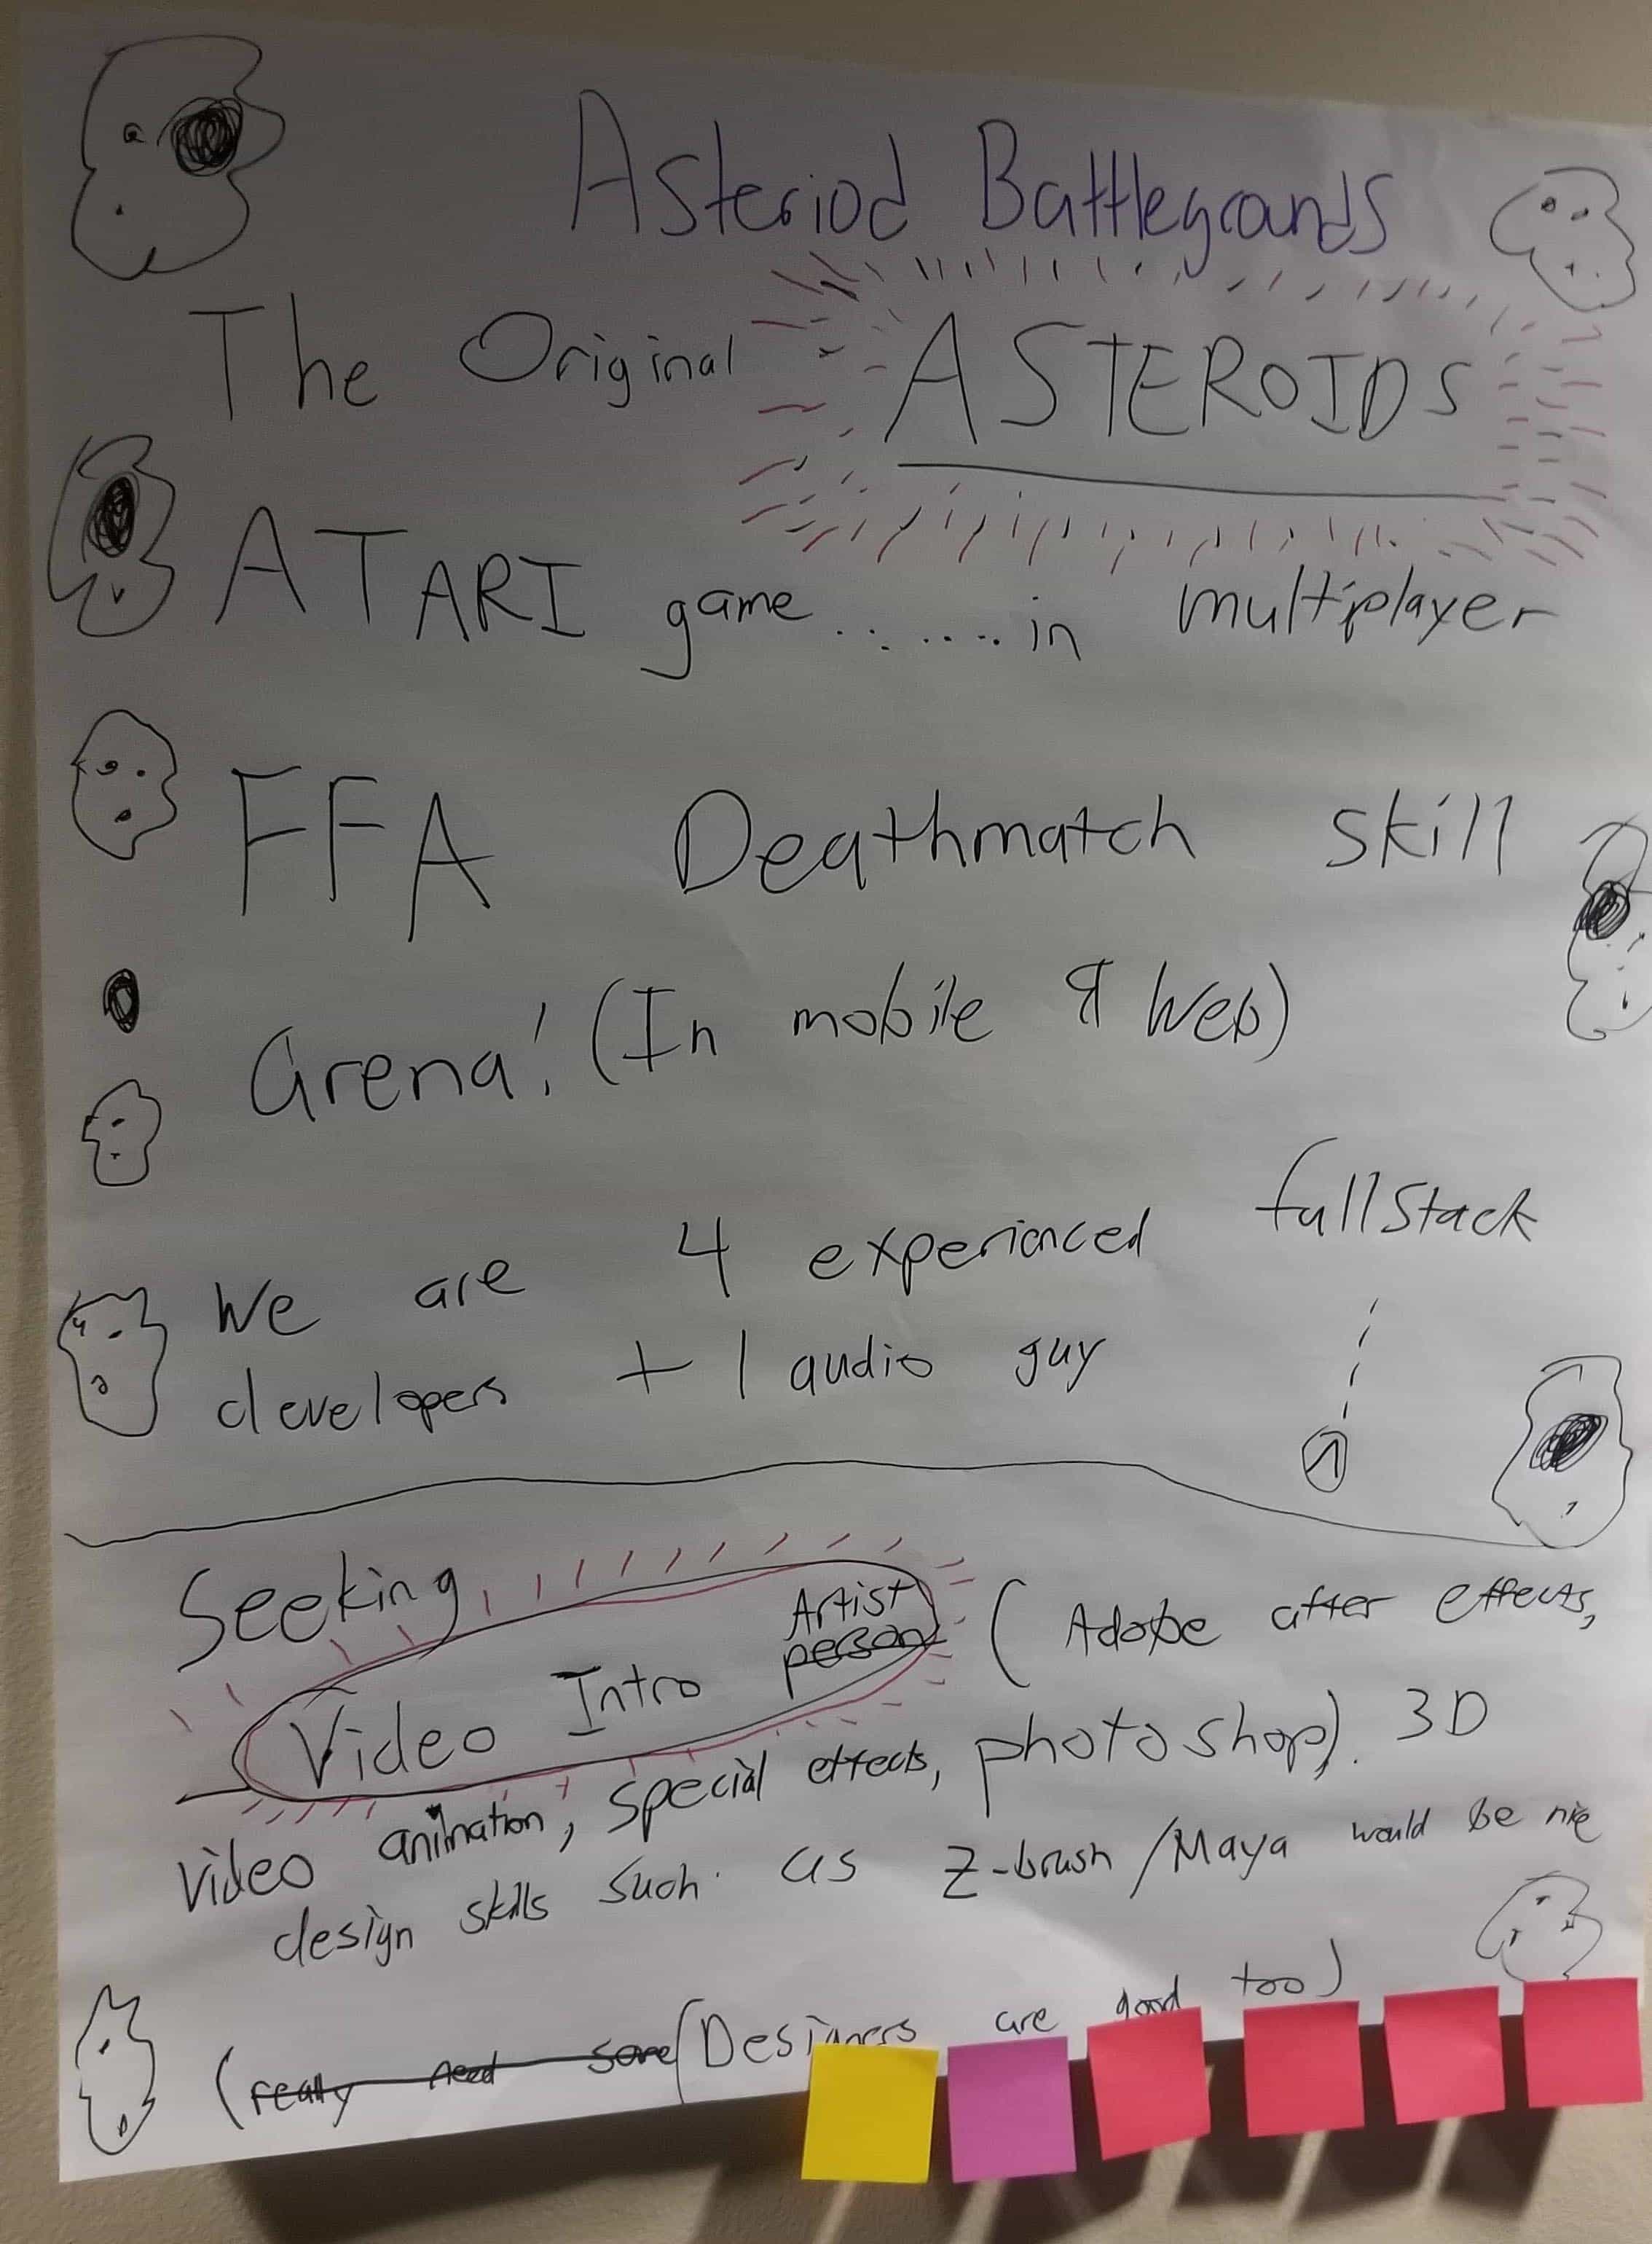 Asteriod Battlegrounds
The Original ASTEROIDS
ATARI game........in multiplayer
FFA Deathmatch skill
arena! (In mobile & Web)
We are 4 experienced fullstack
developers + 1 audio guy
Seeking
Video Intro Artist person (Adobe after effects,
video animation, special effects, photoshop). 3D
design skills such as Z-brush/Maya would be nice
(really need some (Designers are good too)